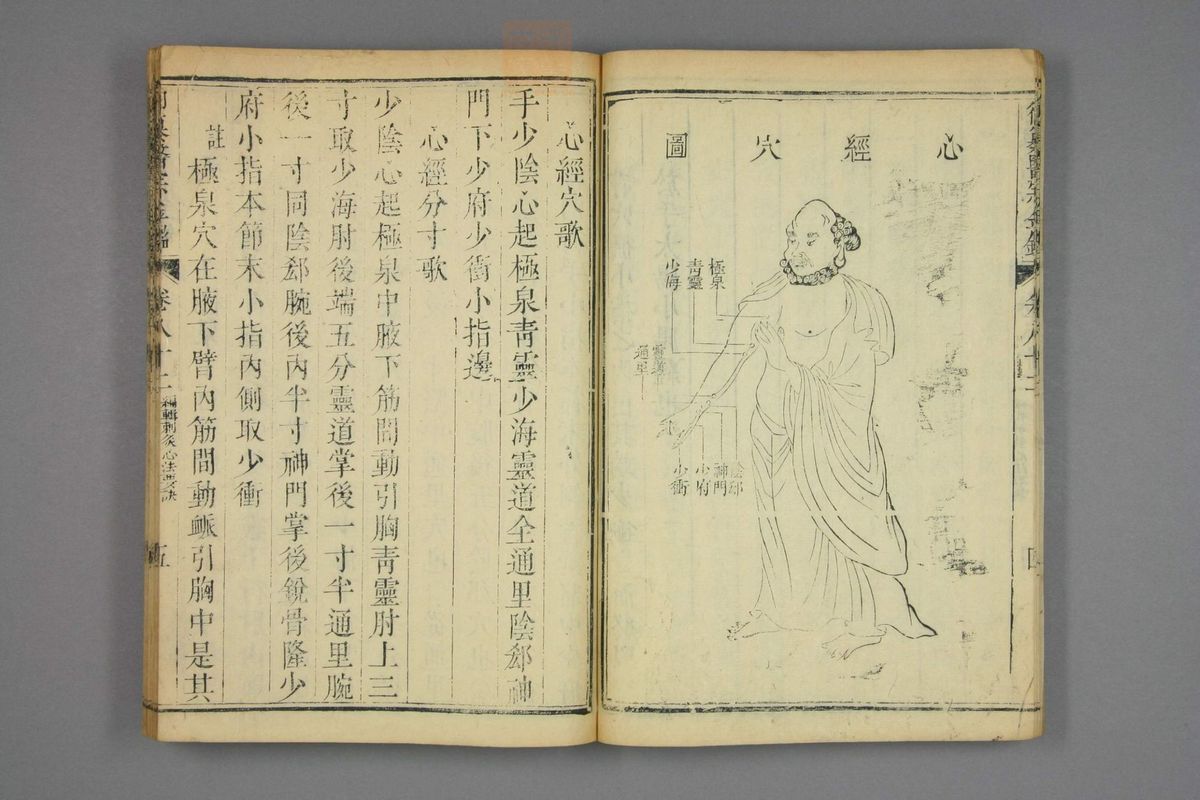 心經穴圖
極泉
青靈
少海
靈道
通里
陰郄
神門
少府
少衝
心經穴歌
手少陰心起極泉青靈少海靈道全通里陰郄神
門下少府少衝小指邊
心經分寸歌
少陰心起極泉中腋下筋間動引胸青靈肘上三
寸取少海肘後端五分靈道掌後一寸半通里腕
後一寸同陰郄腕後內半寸神門掌後銳骨隆少
府小指本節末小指內側取少衝
註極泉穴在腋下臂內筋間動䘑引胸中是其
卷八十二
編輯刺灸心法要訣
五